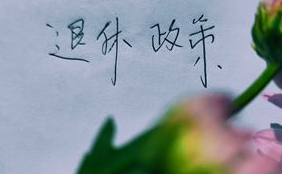 退休政策